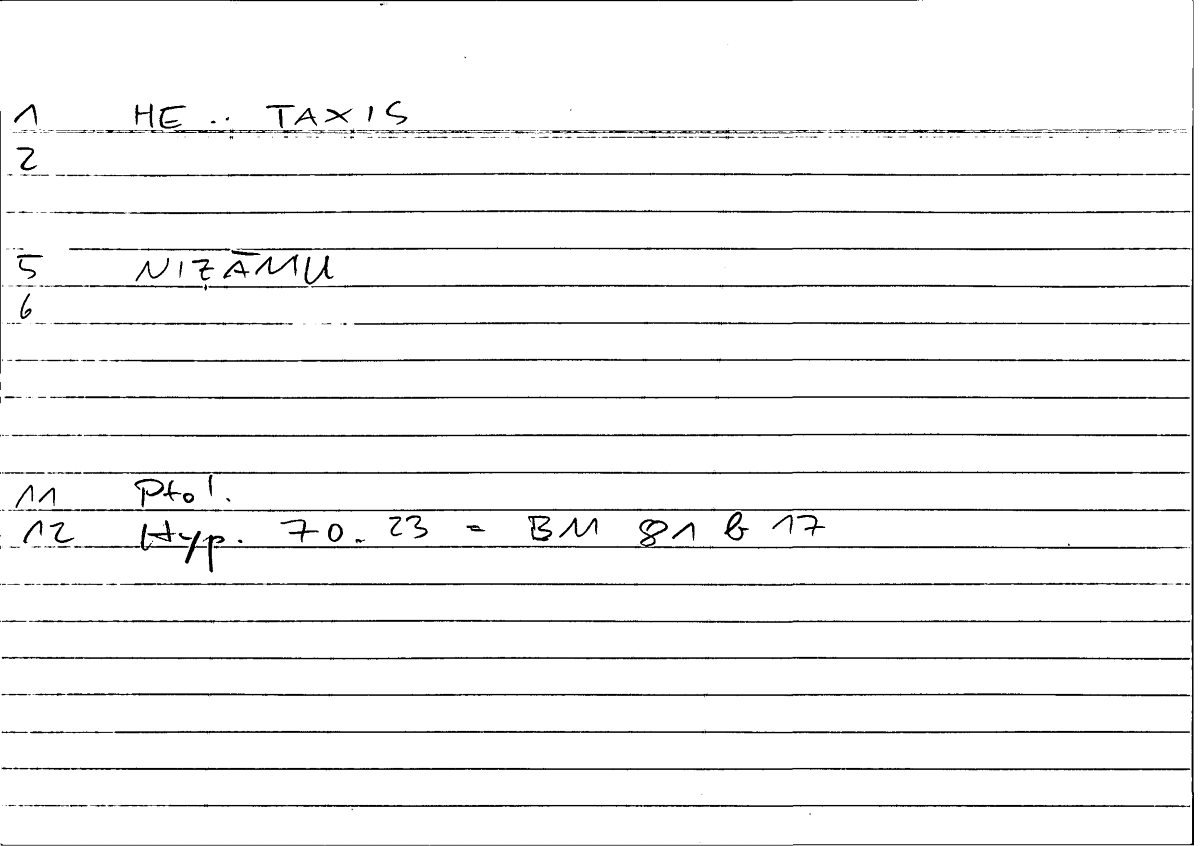 1 HE .. TAXIS
2
5 NIẒĀMU
6
11 Ptol.
12 Hyp. 70.23 = BM 81 b 17